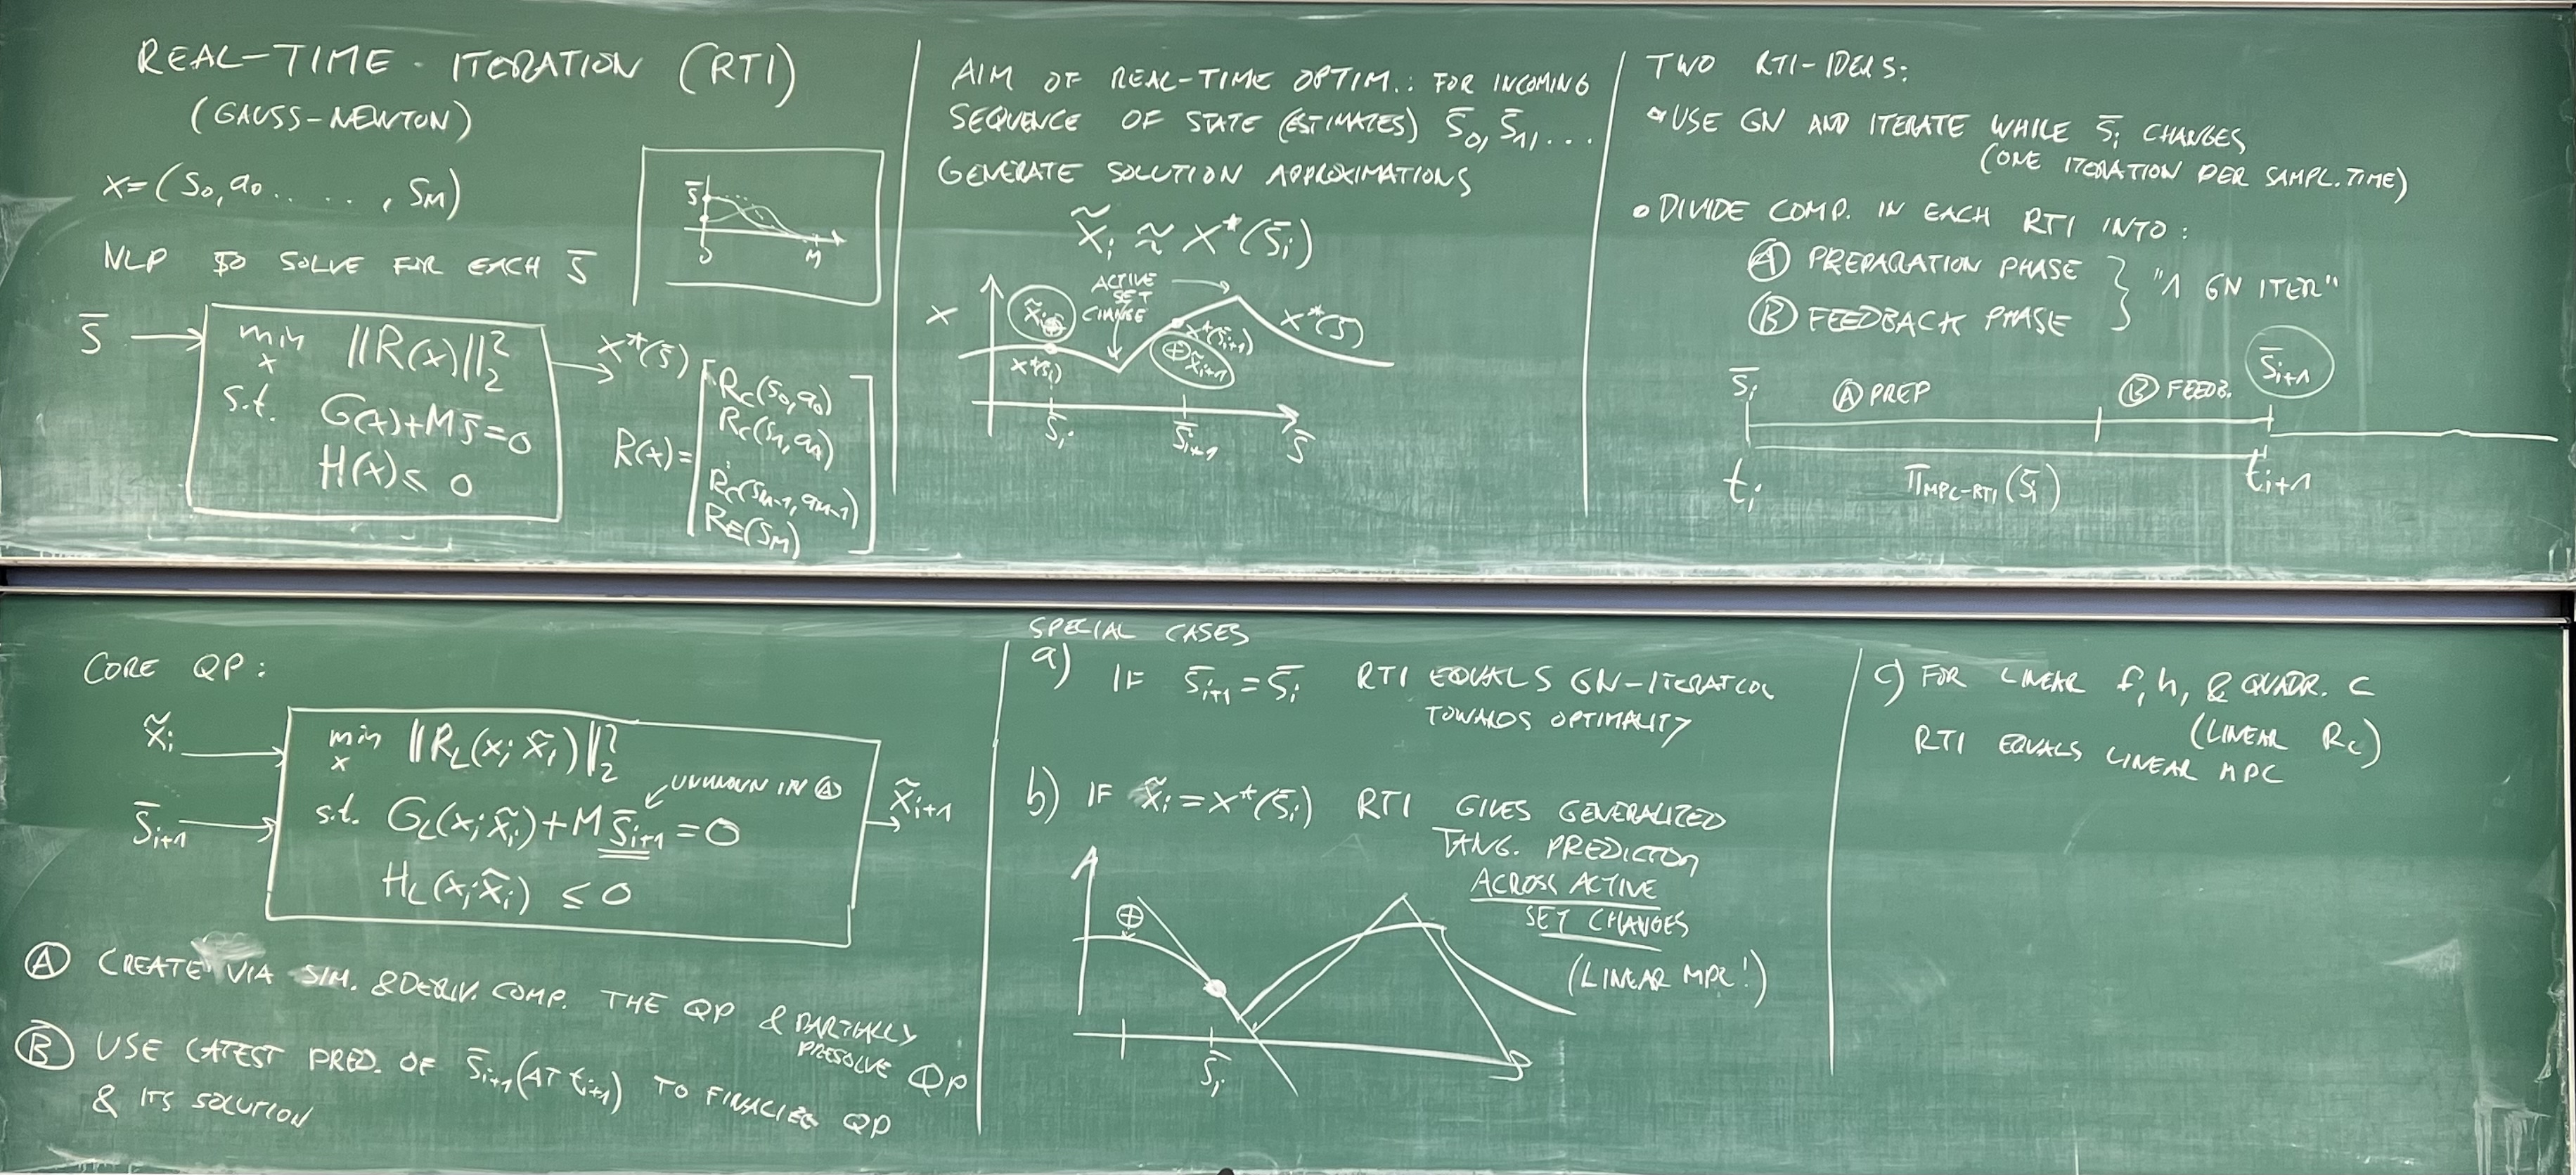 REAL-TIME - ITERATION (RTI)
(GAUSS-NEWTON)
x=(s₀,a₀....., s_M)
NLP TO SOLVE FOR EACH s̄
s̄
0
M
s̄
min ‖R(x)‖₂²
x
s.t. G(x)+Ms̄=0
H(x)≤0
x*(s̄)
R(x)=
R_c(s₀,a₀)
R_c(s₁,a₁)
R_c(s_{M-1},a_{M-1})
R_E(s_M)
AIM OF REAL-TIME OPTIM.: FOR INCOMING
SEQUENCE OF STATE (ESTIMATES) s̄₀, s̄₁, ...
GENERATE SOLUTION APPROXIMATIONS
x̃ᵢ ≈ x*(s̄ᵢ)
ACTIVE
SET
CHANGE
x
x̃ᵢ
x*(s̄ᵢ)
x*(s̄ᵢ₊₁)
x̃ᵢ₊₁
x*(s̄)
s̄ᵢ
s̄ᵢ₊₁
s̄
TWO RTI-IDEAS:
USE GN AND ITERATE WHILE s̄ᵢ CHANGES
(ONE ITERATION PER SAMPL.TIME)
• DIVIDE COMP. IN EACH RTI INTO:
Ⓐ PREPARATION PHASE
Ⓑ FEEDBACK PHASE
"1 GN ITER"
s̄ᵢ
Ⓐ PREP
Ⓑ FEEDB.
s̄ᵢ₊₁
tᵢ
π_{MPC-RTI}(s̄ᵢ)
tᵢ₊₁
CORE QP:
x̃ᵢ
s̄ᵢ₊₁
min ‖R_L(x; x̃ᵢ)‖₂²
x
UNKNOWN IN Ⓐ
s.t. G_L(x; x̃ᵢ)+M s̄ᵢ₊₁=0
H_L(x; x̃ᵢ) ≤ 0
x̃ᵢ₊₁
Ⓐ CREATE VIA SIM. & DERIV. COMP. THE QP & PARTIALLY
PRESOLVE QP
Ⓑ USE LATEST PRED. OF s̄ᵢ₊₁ (AT tᵢ₊₁) TO FINALIZE QP
& ITS SOLUTION
SPECIAL CASES
a) IF s̄ᵢ₊₁=s̄ᵢ RTI EQUALS GN-ITERATION
TOWARDS OPTIMALITY
b) IF x̃ᵢ=x*(s̄ᵢ) RTI GIVES GENERALIZED
TANG. PREDICTOR
ACROSS ACTIVE
SET CHANGES
(LINEAR MPC!)
s̄ᵢ
c) FOR LINEAR f,h, & QUADR. c
(LINEAR R_c)
RTI EQUALS LINEAR MPC